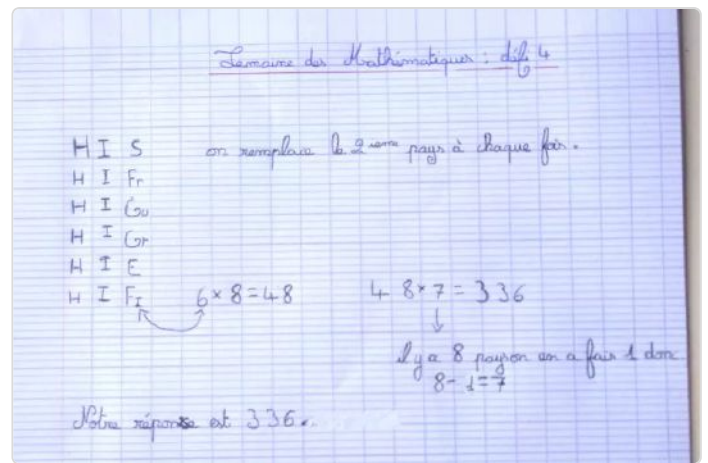 Semaine des Mathématiques : défi 4
H I S on remplace le 2ieme pays à chaque fois.
H I Fr
H I Gu
H I Gr
H I E
H I FI 6 × 8 = 48 48 × 7 = 336
il y a 8 pays on en a fais 1 donc
8 - 1 = 7
Notre réponse est 336.